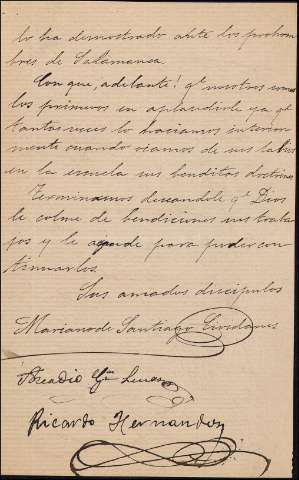 lo ha demostrado ante los prohom
bres de Salamanca.
Con que, adelante! qᵉ nosotros somos
los primeros en aplaudirle ya qᵉ
tantas veces lo haciamos interior
mente cuando oiamos de sus labios
en la escuela sus benditas doctrinas
Terminamos deseandole qᵉ Dios
le colme de bendiciones sus traba
jos y le ayude para poder con
tinuarlos.
Sus amados discipulos
Mariano de Santiago
Gª
Ricardo Hernandez